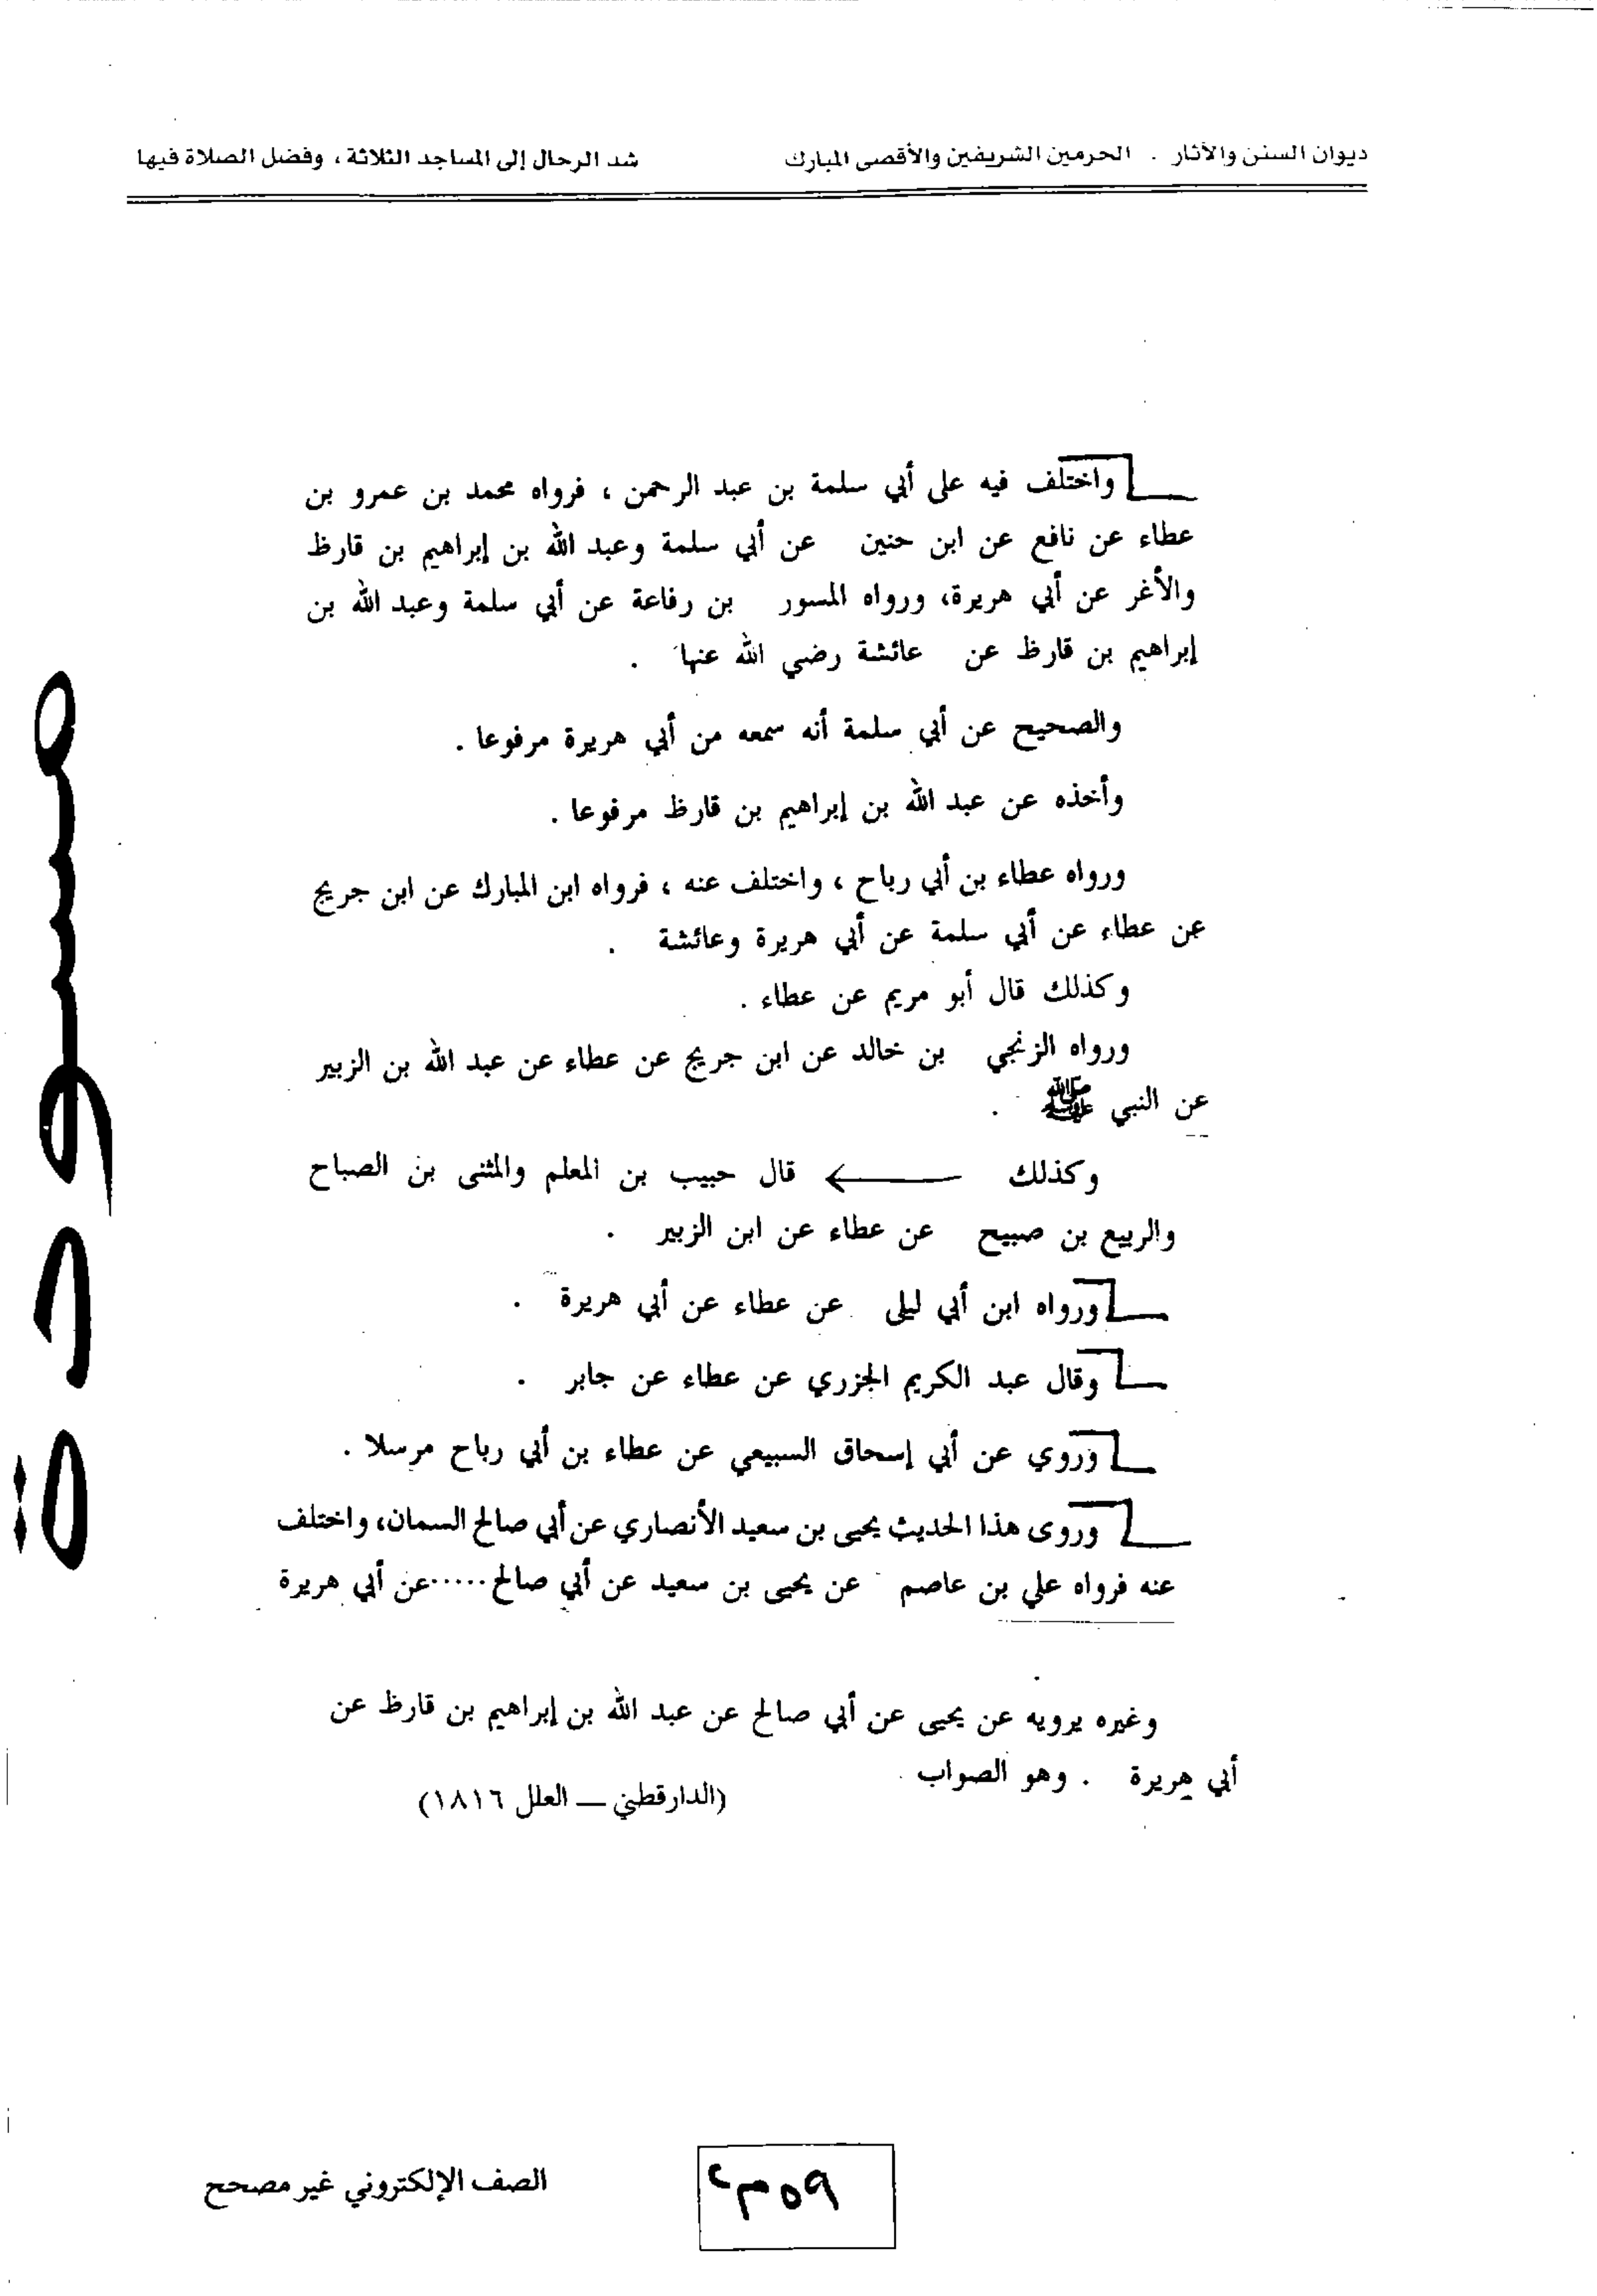 ديوان السنن والآثار . الحرمين الشريفين والأقصى المبارك شد الرحال إلى المساجد الثلاثة ، وفضل الصلاة فيها
واختلف فيه على أبي سلمة بن عبد الرحمن ، فرواه محمد بن عمرو بن
عطاء عن نافع عن ابن حنين عن أبي سلمة وعبد الله بن إبراهيم بن قارظ
والأغر عن أبي هريرة، ورواه المسور بن رفاعة عن أبي سلمة وعبد الله بن
إبراهيم بن قارظ عن عائشة رضي الله عنها .
والصحيح عن أبي سلمة أنه سمعه من أبي هريرة مرفوعا .
وأخذه عن عبد الله بن إبراهيم بن قارظ مرفوعا .
ورواه عطاء بن أبي رباح ، واختلف عنه ، فرواه ابن المبارك عن ابن جريج
عن عطاء عن أبي سلمة عن أبي هريرة وعائشة .
وكذلك قال أبو مريم عن عطاء .
ورواه الزنجي بن خالد عن ابن جريج عن عطاء عن عبد الله بن الزبير
عن النبي ﷺ .
وكذلك ← قال حبيب بن المعلم والمثنى بن الصباح
والربيع بن صبيح عن عطاء عن ابن الزبير .
ورواه ابن أبي ليلى عن عطاء عن أبي هريرة .
وقال عبد الكريم الجزري عن عطاء عن جابر .
وروي عن أبي إسحاق السبيعي عن عطاء بن أبي رباح مرسلا .
وروى هذا الحديث يحيى بن سعيد الأنصاري عن أبي صالح السمان، واختلف
عنه فرواه علي بن عاصم عن يحيى بن سعيد عن أبي صالح.....عن أبي هريرة
وغيره يرويه عن يحيى عن أبي صالح عن عبد الله بن إبراهيم بن قارظ عن
أبي هريرة . وهو الصواب
(الدارقطني — العلل ١٨١٦)
مسودة
الصف الإلكتروني غير مصحح